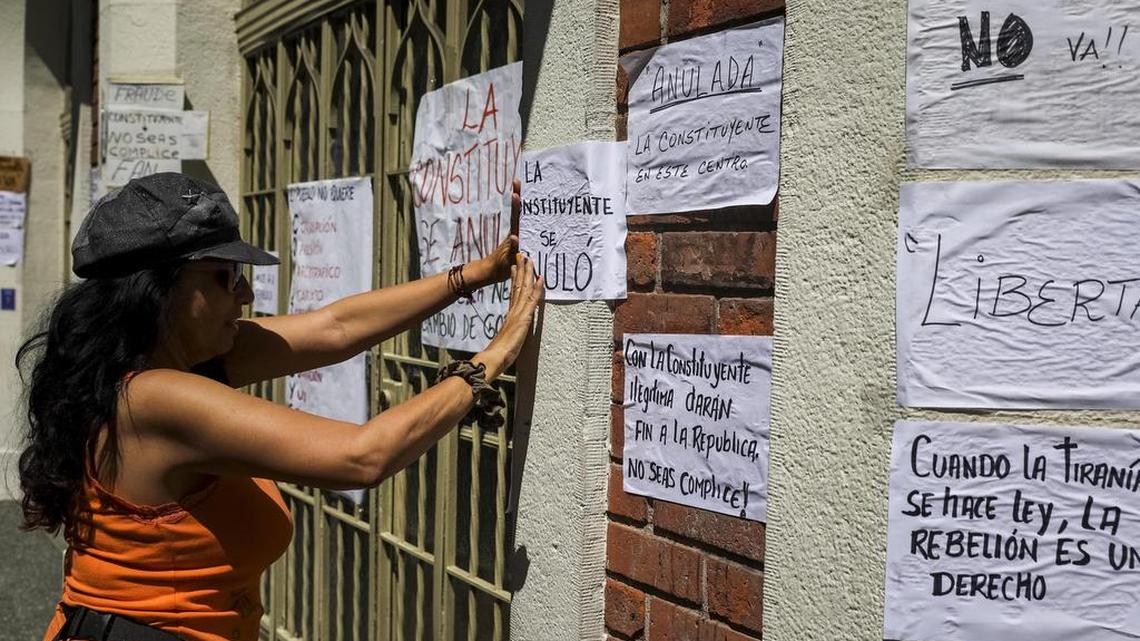 FRAUDE
CONSTITUYENTE
NO SEAS
COMPLICE
FAN
EL PUEBLO NO QUIERE
LA
CONSTITUY
SE ANUL
CAMBIO DE GO
LA
ONSTITUYENTE
SE
NULÓ
"ANULADA"
LA CONSTITUYENTE
EN ESTE CENTRO.
CON LA CONSTITUYENTE
ILEGÍTIMA DARÁN
FIN A LA REPUBLICA.
NO SEAS COMPLICE!
NO VA!!
"LIBERTA
CUANDO LA TIRANÍA
SE HACE LEY, LA
REBELIÓN ES UN
DERECHO